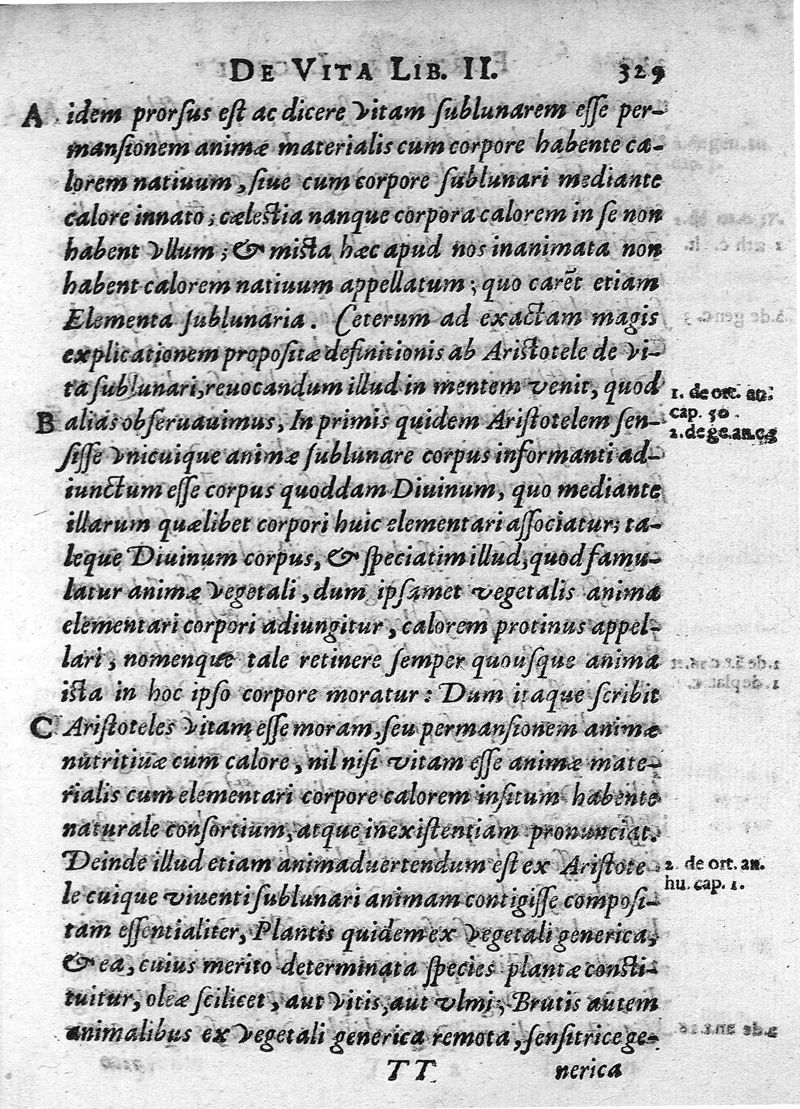 DE VITA LIB. II. 329
A idem prorsus est ac dicere vitam sublunarem esse per-
mansionem animæ materialis cum corpore habente ca-
lorem natiuum, siue cum corpore sublunari mediante
calore innato; cælestia nanque corpora calorem in se non
habent vllum; & mista hæc apud nos inanimata non
habent calorem natiuum appellatum; quo carēt etiam
Elementa sublunaria. Ceterum ad exactam magis
explicationem propositæ definitionis ab Aristotele de vi-
ta sublunari, reuocandum illud in mentem venit, quod
1. de ort. an.
cap. 50.
2. de ge. an. c. 3
B alias obseruauimus, In primis quidem Aristotelem sen-
sisse vnicuique animæ sublunare corpus informanti ad-
iunctum esse corpus quoddam Diuinum, quo mediante
illarum quælibet corpori huic elementari associatur; ta-
leque Diuinum corpus, & speciatim illud, quod famu-
latur animæ vegetali, dum ipsamet vegetalis anima
elementari corpori adiungitur, calorem protinus appel-
lari, nomenque tale retinere semper quousque anima
ista in hoc ipso corpore moratur: Dum itaque scribit
C Aristoteles vitam esse moram, seu permansionem animæ
nutritiuæ cum calore, nil nisi vitam esse animæ mate-
rialis cum elementari corpore calorem insitum habente
naturale consortium, atque inexistentiam pronunciat.
Deinde illud etiam animaduertendum est ex Aristote
2. de ort. an.
hu. cap. 1.
le cuique viuenti sublunari animam contigisse composi-
tam essentialiter, Plantis quidem ex vegetali generica,
& ea, cuius merito determinata species plantæ consti-
tuitur, oleæ scilicet, aut vitis, aut vlmi; Brutis autem
animalibus ex vegetali generica remota, sensitrice ge-
TT nerica